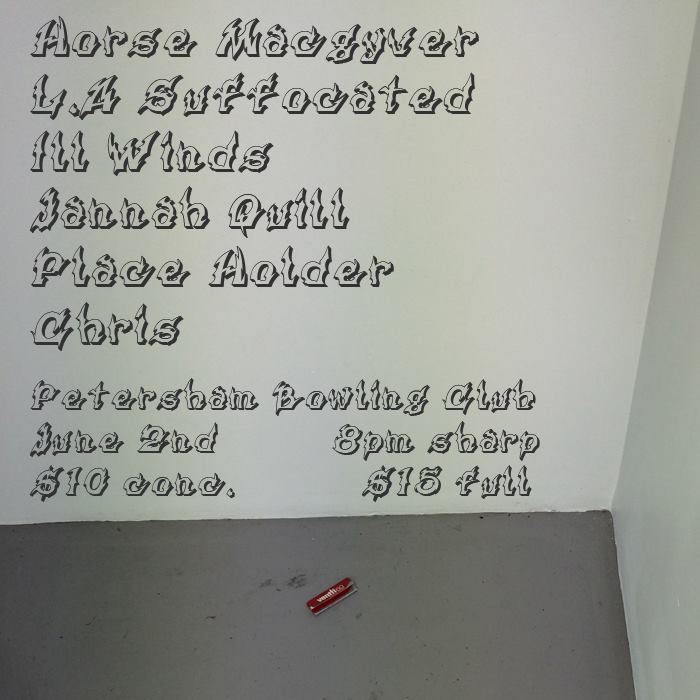 Horse Macgyver
L.A Suffocated
Ill Winds
Jannah Quill
Place Holder
Chris
Petersham Bowling Club
June 2nd 8pm sharp
$10 conc. $15 full